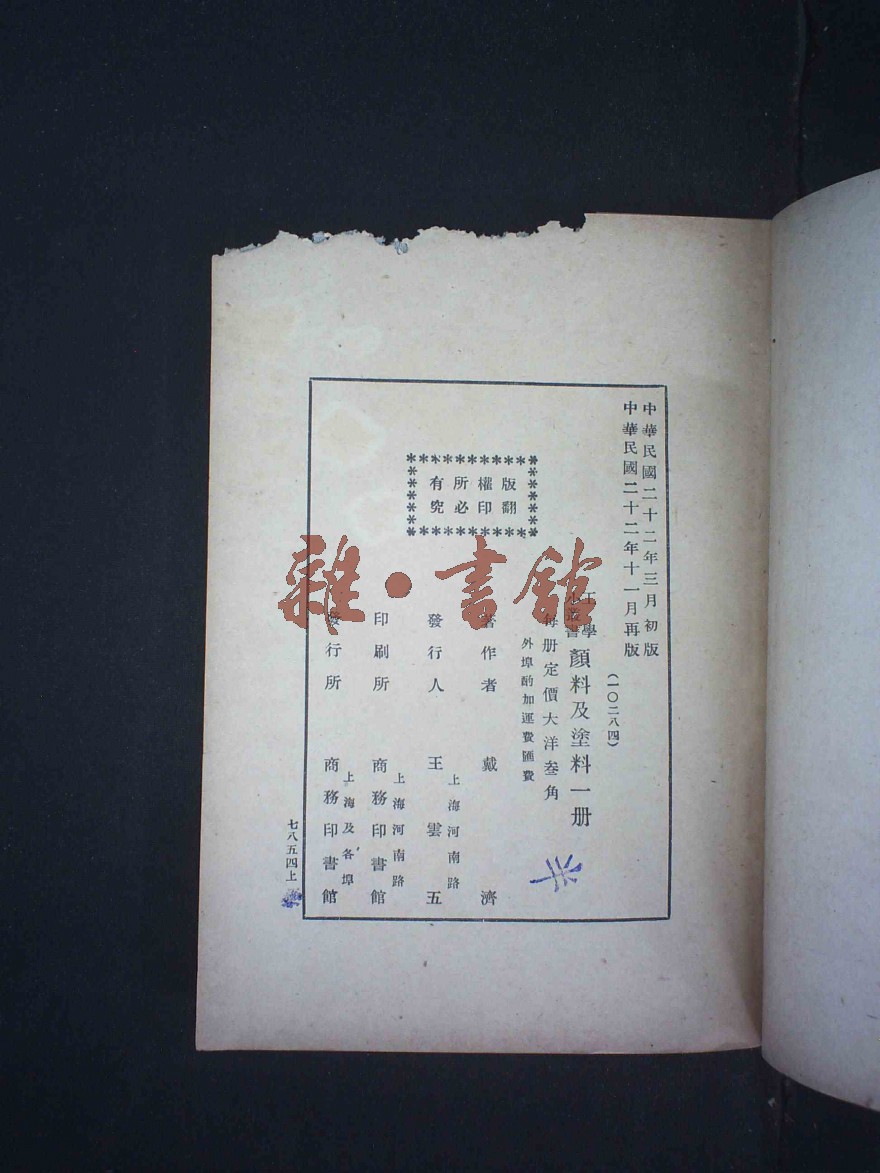 中華民國二十二年三月初版
中華民國二十二年十一月再版
(一〇二八四)
工學小叢書
顏料及塗料一册
每册定價大洋叁角
外埠酌加運費匯費
版權所有
翻印必究
著作者 戴濟
上海河南路
發行人 王雲五
上海河南路
印刷所 商務印書館
上海及各埠
發行所 商務印書館
七八五四上
雜·書館